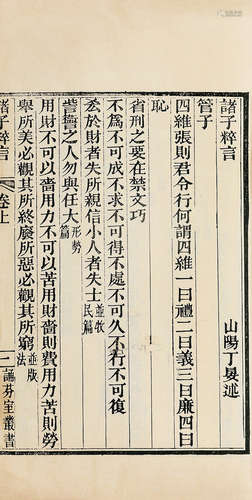 諸子粹言
山陽丁晏述
管子
四維張則君令行何謂四維一曰禮二曰義三曰廉四曰
恥
省刑之要在禁文巧
不為不可成不求不可得不處不可久不行不可復
吝於財者失所親信小人者失士並牧民篇
訾讆之人勿與任大形勢篇
用財不可以嗇用力不可以苦用財嗇則費用力苦則勞
舉所美必觀其所終廢所惡必觀其所窮並版法
諸子粹言
卷上
一
誦芬室叢書